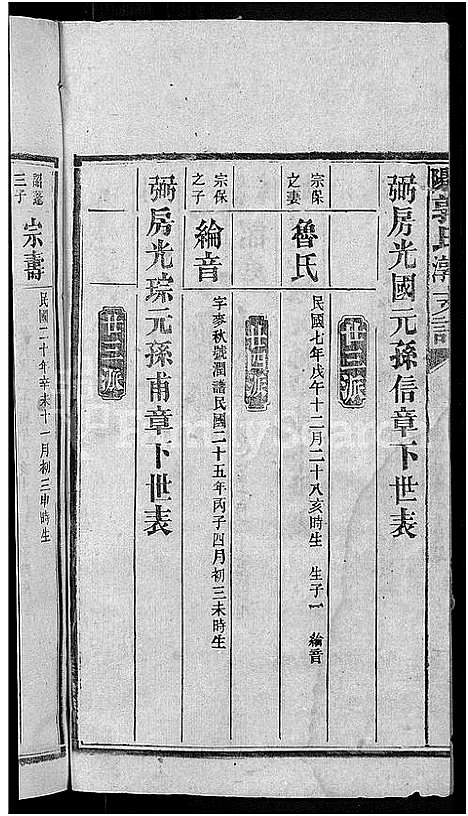 弼房光國元孫信章下世表
廿三派
宗保之妻
魯氏
民國七年戊午十二月二十八亥時生 生子一 綸音
廿四派
宗保之子
綸音
字麥秋號潤諧民國二十五年丙子四月初三未時生
弼房光琮元孫甫章下世表
廿三派
三子
宗壽
民國二十年辛未十一月初三申時生